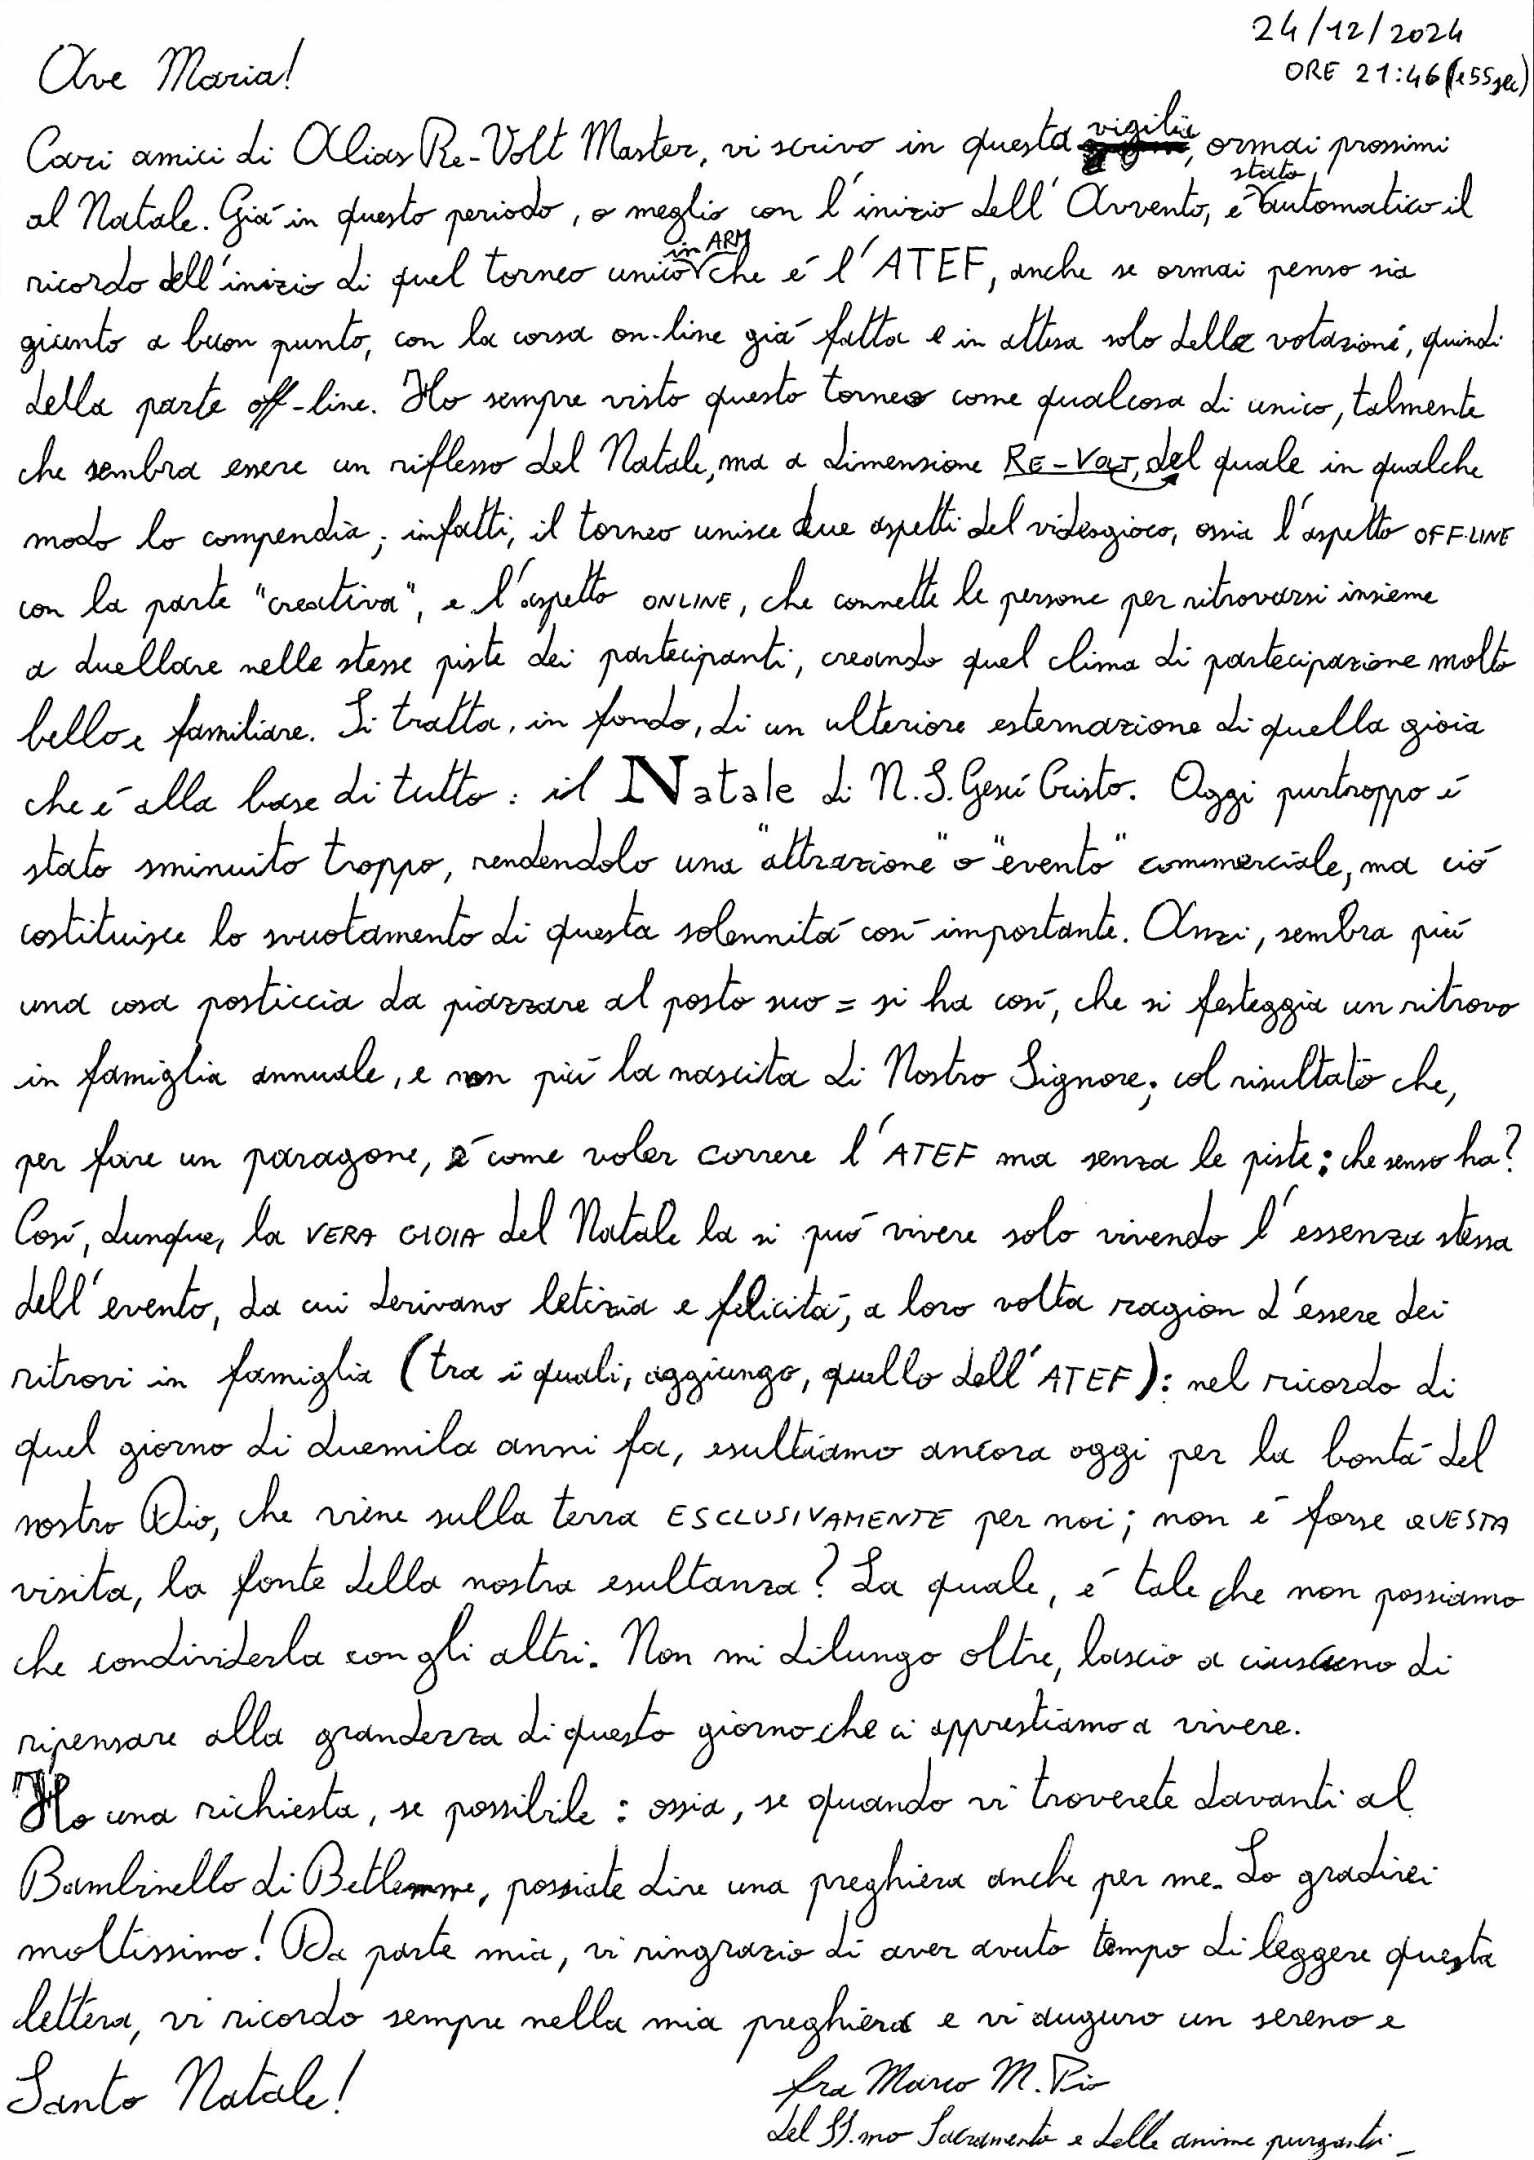 24/12/2024
ORE 21:46 (e 55 sec)
Ave Maria!
Cari amici di Alias Re-Volt Master, vi scrivo in questa vigilia, ormai prossimi
al Natale. Giá in questo periodo, o meglio con l'inizio dell'Avvento, é stato automatico il
ricordo dell'inizio di quel torneo unico in ARM che é l'ATEF, anche se ormai penso sia
giunto a buon punto, con la corsa on-line giá fatta e in attesa solo delle votazioni, quindi
della parte off-line. Ho sempre visto questo torneo come qualcosa di unico, talmente
che sembra essere un riflesso del Natale, ma a dimensione RE-VOLT, del quale in qualche
modo lo compendia; infatti, il torneo unisce due aspetti del videogioco, ossia l'aspetto OFF-LINE
con la parte "creativa", e l'aspetto ONLINE, che connette le persone per ritrovarsi insieme
a duellare nelle stesse piste dei partecipanti, creando quel clima di partecipazione molto
bello e familiare. Si tratta, in fondo, di un ulteriore esternazione di quella gioia
che é alla base di tutto: il Natale di N.S. Gesú Cristo. Oggi purtroppo é
stato sminuito troppo, rendendolo una "attrazione" o "evento" commerciale, ma ció
costituisce lo svuotamento di questa solennitá cosí importante. Anzi, sembra piú
una cosa posticcia da piazzare al posto suo = si ha cosí, che si festeggia un ritrovo
in famiglia annuale, e non piú la nascita di Nostro Signore; col risultato che,
per fare un paragone, é come voler correre l'ATEF ma senza le piste: che senso ha?
Cosí, dunque, la VERA GIOIA del Natale la si puó vivere solo vivendo l'essenza stessa
dell'evento, da cui derivano letizia e felicitá, a loro volta ragion d'essere dei
ritrovi in famiglia (tra i quali, aggiungo, quello dell'ATEF): nel ricordo di
quel giorno di duemila anni fa, esultiamo ancora oggi per la bontá del
nostro Dio, che viene sulla terra ESCLUSIVAMENTE per noi; non é forse QUESTA
visita, la fonte della nostra esultanza? La quale, é tale che non possiamo
che condividerla con gli altri. Non mi dilungo oltre, lascio a ciascuno di
ripensare alla grandezza di questo giorno che ci apprestiamo a vivere.
Ho una richiesta, se possibile: ossia, se quando vi troverete davanti al
Bambinello di Betlemme, possiate dire una preghiera anche per me. Lo gradirei
moltissimo! Da parte mia, vi ringrazio di aver avuto tempo di leggere questa
lettera, vi ricordo sempre nella mia preghiera e vi auguro un sereno e
Santo Natale!
fra Marco M. Pio
del SS.mo Sacramento e delle anime purganti-